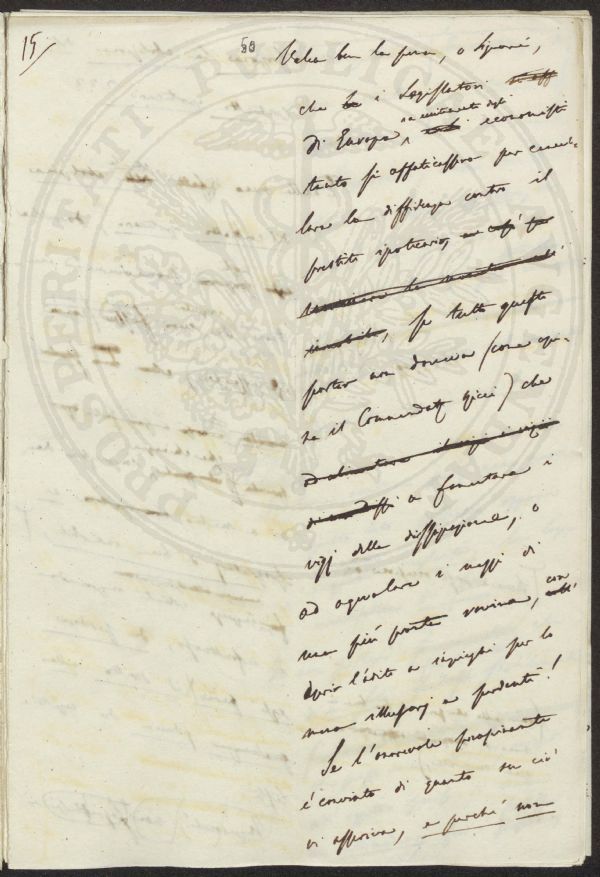 15
50
Valea ben la pena, o Signori,
che i Legislatori
di Europa, economisti
tanto si affaticassero per cancel-
lare la diffidenza contro il
prestito ipotecario,
se tutto questo
poter non doveva (come opi-
na il Commendat. Ricci) che
a fomentare i
vizj della dissipazione, o
ad agevolare i mezzi di
una più pronta rovina, con
aprir l'adito a impieghi per lo
meno illusorj e perdenti!
Se l'onorevole proponente
é convinto di quanto su ciò
vi asseriva, e perché non
PROSPERITATI PUBLICAE AUGENDAE